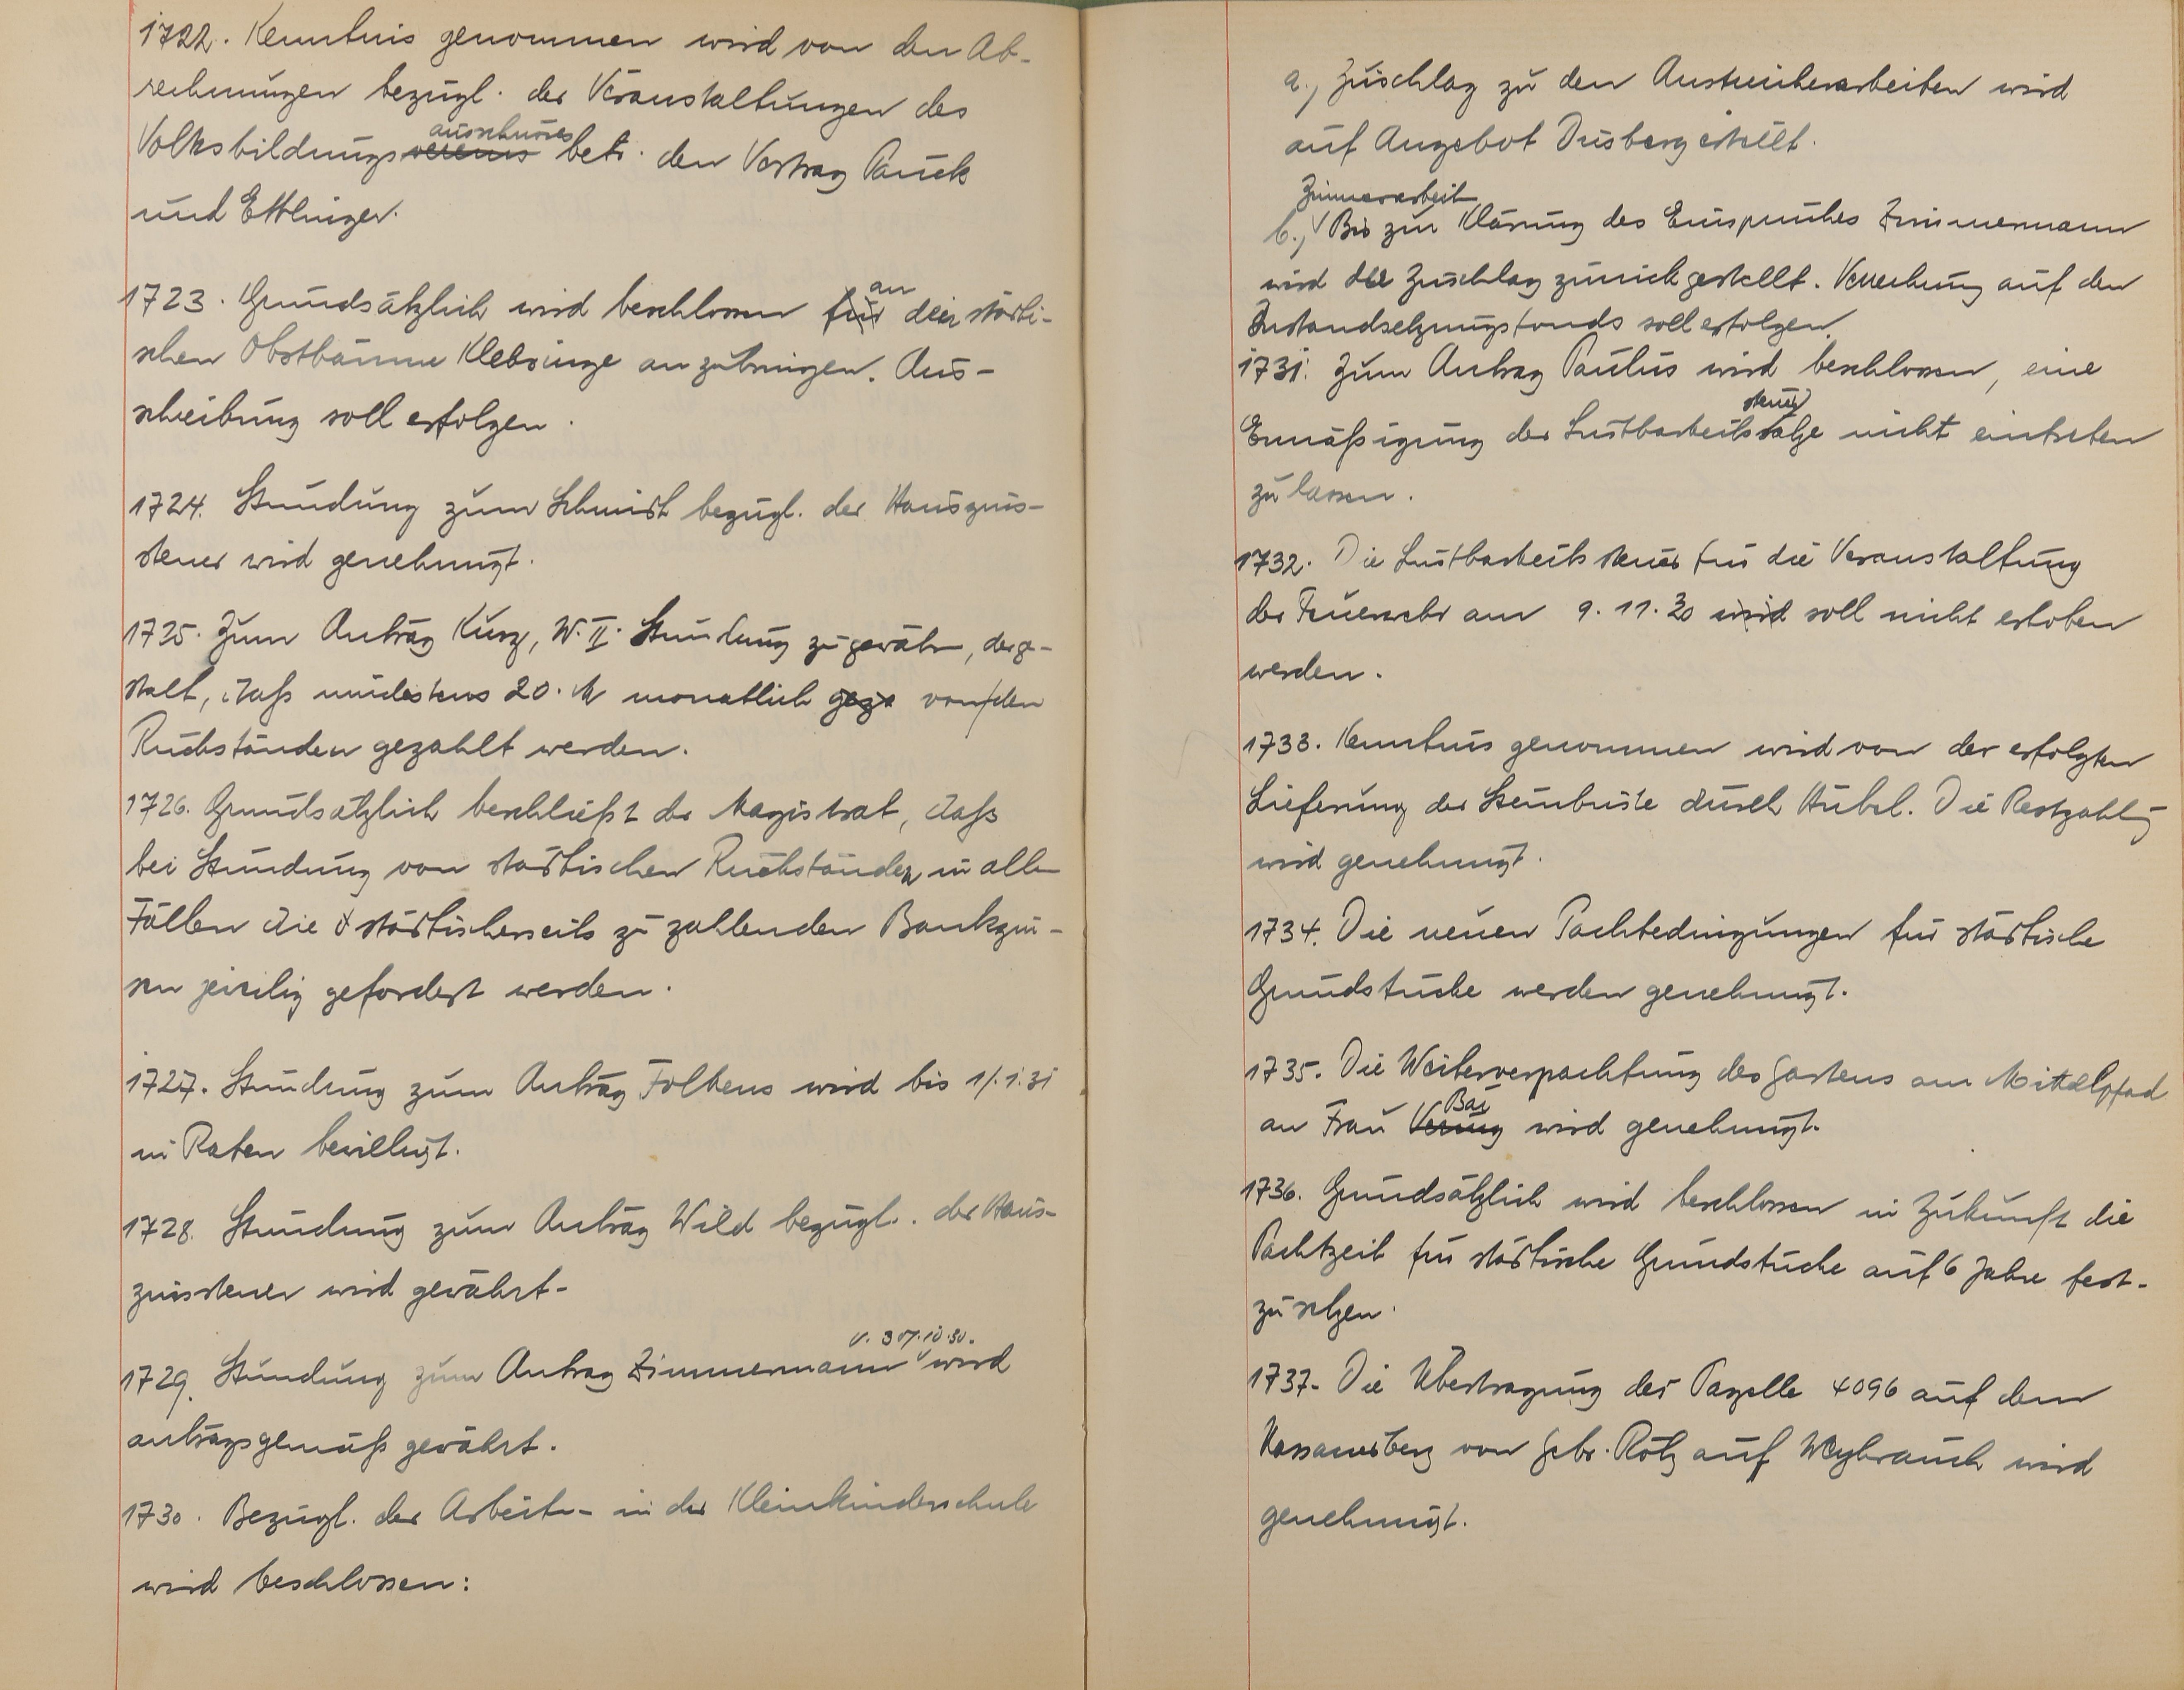 1722. Kenntnis genommen wird von den Ab-
rechnungen bezügl. der Veranstaltungen des
Volksbildungsvereins ausschusses betr. den Vortrag Pauck
und Ettlinger.
1723. Grundsätzlich wird beschlossen für an den städti-
schen Obstbäume Klebringe anzubringen. Aus-
schreibung soll erfolgen.
1724. Stundung zum Schmidt bezügl. der Hauszins-
steuer wird genehmigt.
1725. Zum Antrag Kurz, W. II. Stundung zu gewähr, derge-
stalt, dass mindestens 20. M monatlich von den
Rückständen gezahlt werden.
1726. Grundsätzlich beschließt der Magistrat, dass
bei Stundung von städtischen Rückständen in allen
Fällen die städtischerseits zu zahlenden Bankzin-
sen jeweilig gefordert werden.
1727. Stundung zum Antrag Folbens wird bis 1/.1.31
in Raten bewilligt.
1728. Stundung zum Antrag Wild bezügl. der Haus-
zinssteuer wird gewährt.
v. 30/.10.30.
1729. Stundung zum Antrag Zimmermann wird
antragsgemäß gewährt.
1730. Bezügl. der Arbeiten in der Kleinkinderschule
wird beschlossen:
a., Zuschlag zu den Anstreicherarbeiten wird
auf Angebot Dusberg erteilt.
Zimmerarbeit
b., Bis zur Klärung des Einspruches Zimmermann
wird der Zuschlag zurückgestellt. Verrechnung auf den
Instandsetzungsfonds soll erfolgen.
1731. Zum Antrag Paulus wird beschlossen, eine
steuer
Ermäßigung der Lustbarkeitssätze nicht eintreten
zu lassen.
1732. Die Lustbarkeitssteuer für die Veranstaltung
der Feuerwehr am 9.11.30 wird soll nicht erhoben
werden.
1733. Kenntnis genommen wird von der erfolgten
Lieferung der Steinbrüste durch Hübel. Die Restzahlg
wird genehmigt.
1734. Die neuen Pachtbedingungen für städtische
Grundstücke werden genehmigt.
1735. Die Weiterverpachtung des Gartens am Mittelpfad
Bai
an Frau wird genehmigt.
1736. Grundsätzlich wird beschlossen in Zukunft die
Pachtzeit für städtische Grundstücke auf 6 Jahre fest-
zusetzen.
1737. Die Übertragung der Parzelle 4096 auf dem
von Gebr. Rotz auf Weybrauch wird
genehmigt.